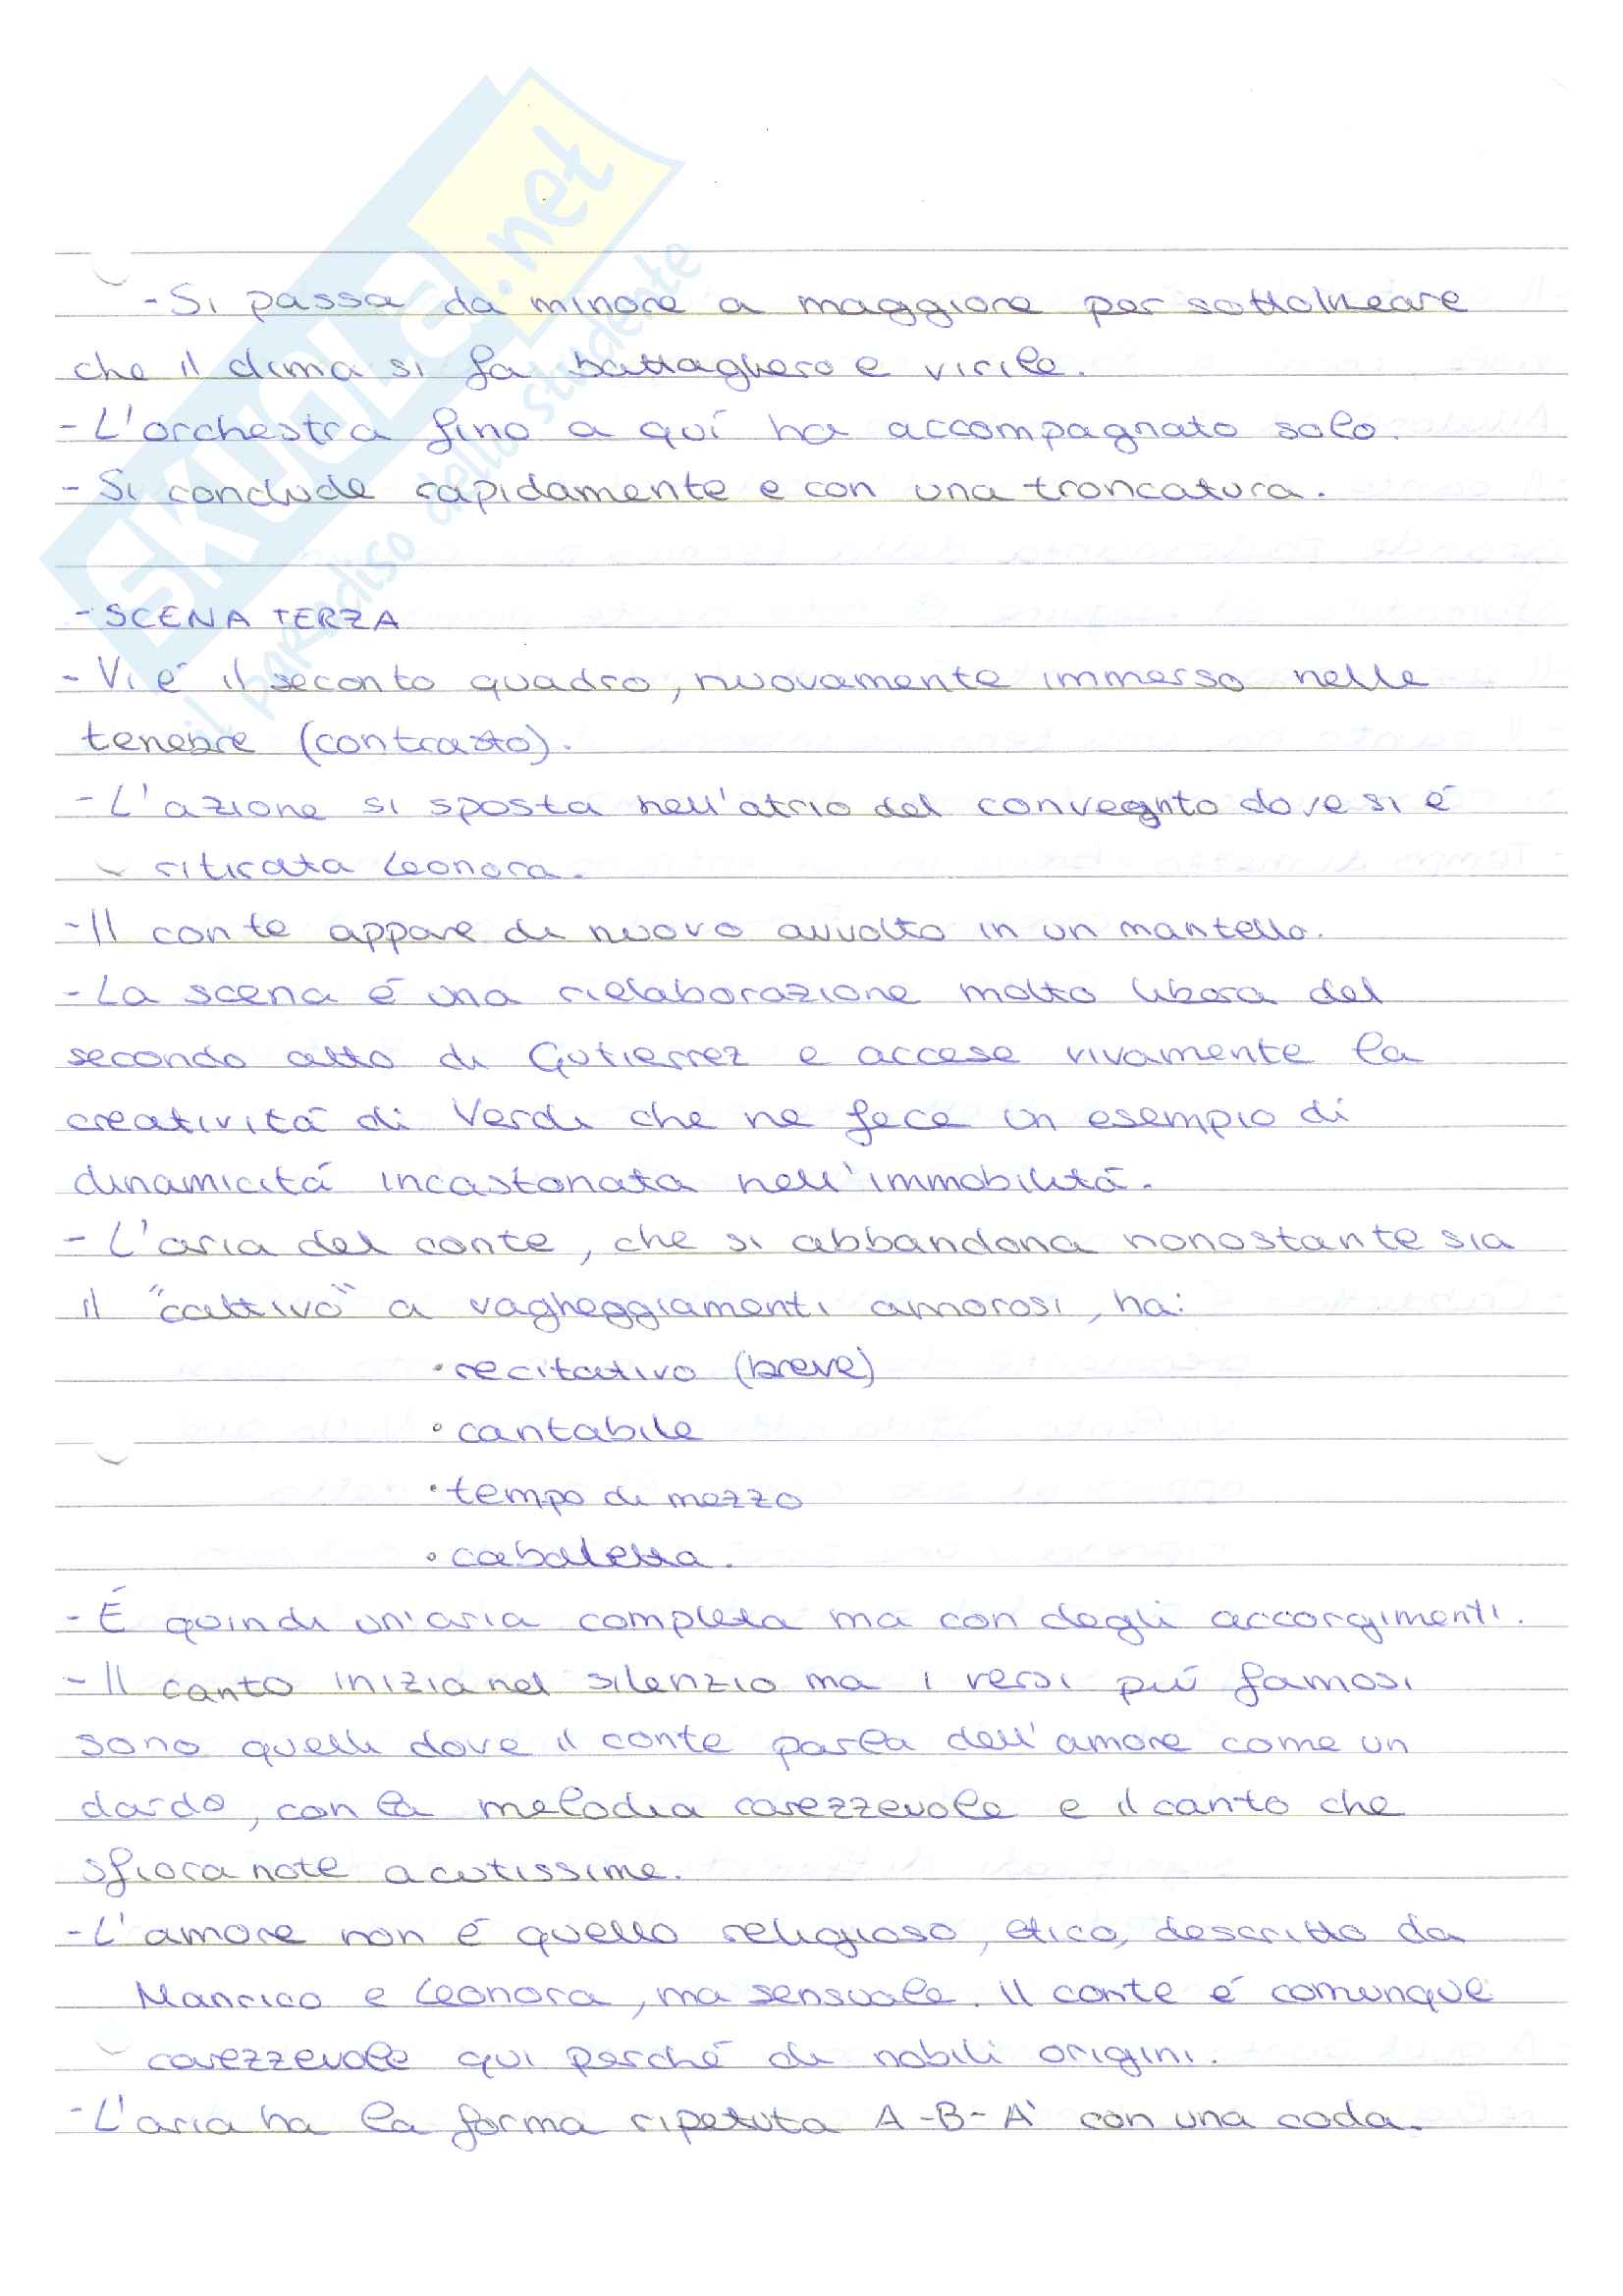 SKUOLA.net
il paradiso dello studente
- Si passa da minore a maggiore per sottolineare
che il clima si fa battagliero e virile.
- L'orchestra fino a quí ha accompagnato solo.
- Si conclude rapidamente e con una troncatura.
- SCENA TERZA
- Vi é il seconto quadro, nuovamente immerso nelle
tenebre (contrasto).
- L'azione si sposta nell'atrio del convegnto dove si é
ritirata Leonora.
- Il conte appare di nuovo avvolto in un mantello.
- La scena é una rielaborazione molto libera del
secondo atto di Gutierrez e accese vivamente la
creativitá di Verdi che ne fece un esempio di
dinamicitá incastonata nell'immobilitá.
- L'aria del conte, che si abbandona nonostante sia
il "cattivo" a vagheggiamenti amorosi, ha:
• recitativo (breve)
• cantabile
• tempo di mezzo
• cabaletta.
- É quindi un'aria completa ma con degli accorgimenti.
- Il canto inizia nel silenzio ma i versi piú famosi
sono quelli dove il conte parla dell'amore come un
dardo, con la melodia carezzevole e il canto che
sfiora note acutissime.
- L'amore non é quello religioso, etico, descritto da
Manrico e Leonora, ma sensuale. Il conte é comunque
carezzevole qui perché di nobili origini.
- L'aria ha la forma ripetuta A-B-A' con una coda.